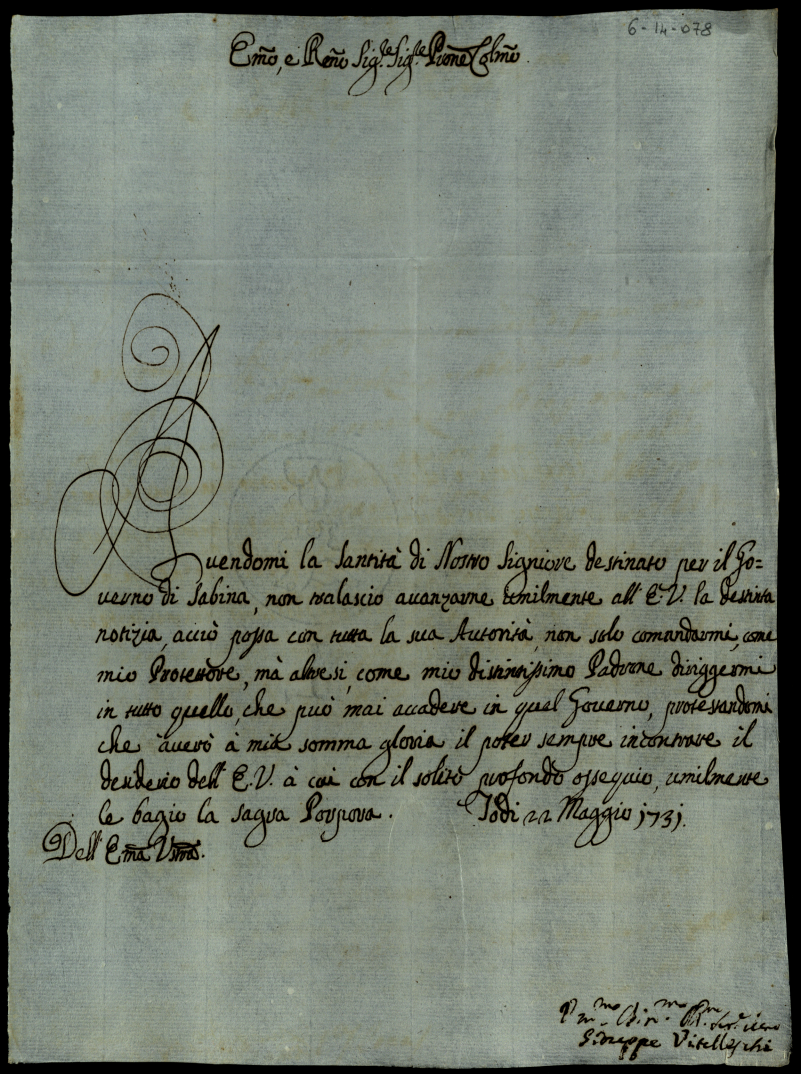 6-14-078
Em̃o, e Reño Sig.re Sig.re Prone Colmo.
Avendomi la Santità di Nostro Signiore destinato per il Go=
verno di Sabina, non tralascio avanzarne umilmente all' E.V. la destinta
notizia, acciò possa con tutta la sua Autorità, non solo comandarmi, come
mio Protettore, mà altresì, come mio distintissimo Padrone diriggermi
in tutto quello, che può mai accadere in quel Governo, protestandomi
che averò à mia somma gloria il poter sempre incontrare il
desiderio dell' E.V. à cui con il solito profondo ossequio, umilmente
le bagio la sagra Porpora. Todi 22 Maggio 1731.
Dell' Em̃a V̄r̄a.
Giuseppe Vitelleschi